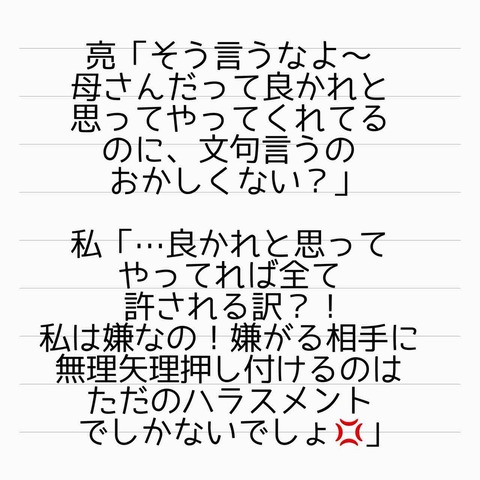 亮「そう言うなよ～
母さんだって良かれと
思ってやってくれてる
のに、文句言うの
おかしくない？」
私「…良かれと思って
やってれば全て
許される訳？！
私は嫌なの！嫌がる相手に
無理矢理押し付けるのは
ただのハラスメント
でしかないでしょ💢」